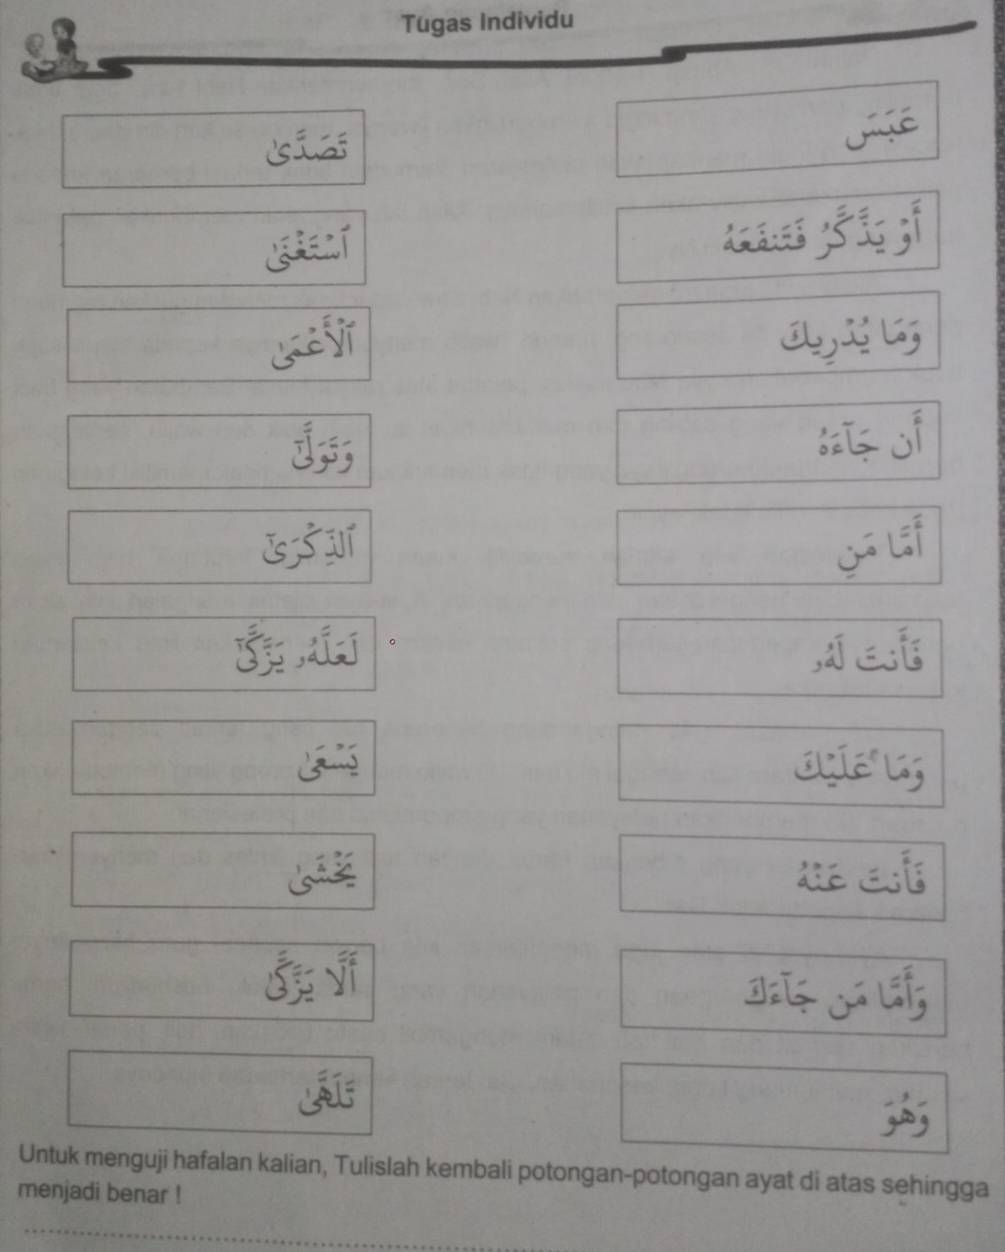 Tugas Individu
عَبَسَ
تَصَدّٰى
أَوْ يَذَّكَّرُ فَتَنْفَعَهُ
اسْتَغْنٰى
وَمَا يُدْرِيْكَ
الْأَعْمٰى
أَنْ جَآءَهُ
وَتَوَلّٰىٓ
أَمَّا مَنِ
الذِّكْرٰىٓ
فَأَنْتَ لَهٗ
لَعَلَّهٗ يَزَّكّٰىٓ
وَمَا عَلَيْكَ
يَسْعٰى
فَأَنْتَ عَنْهُ
يَخْشٰى
وَأَمَّا مَنْ جَآءَكَ
أَلَّا يَزَّكّٰى
وَهُوَ
تَلَهّٰى
Untuk menguji hafalan kalian, Tulislah kembali potongan-potongan ayat di atas sehingga
menjadi benar !